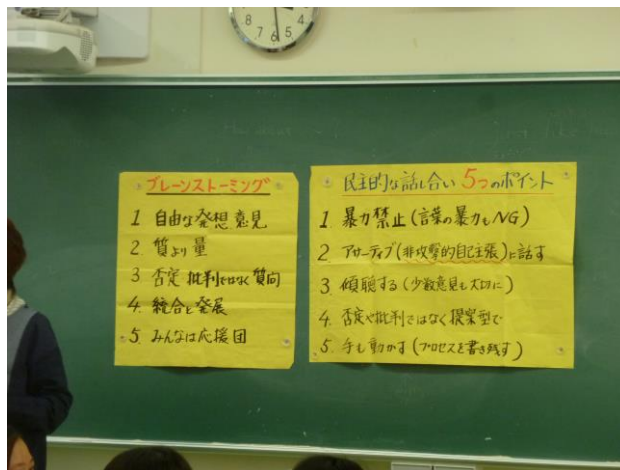 ブレーンストーミング
1 自由な発想 意見
2. 質より量
3 否定 批判ではなく 質問
4. 統合と発展
5. みんなは応援団
民主的な話し合い 5つのポイント
1 暴力禁止(言葉の暴力もNG)
2 アサーティブ(非攻撃的自己主張)に話す
3 傾聴する(少数意見も大切に)
4 否定や批判ではなく提案型で
5. 手も動かす(プロセスを書き残す)
8 7 6 5 4